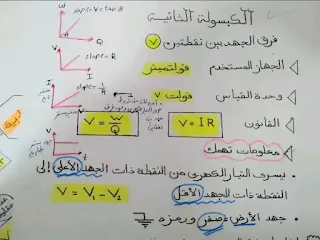 الكبسولة الثانية
فرق الجهد بين نقطتين V
الجهاز المستخدم فولتميتر
وحدة القياس فولت V
القانون V = IR V = W/Q
معلومات تهمك
• يسرى التيار الكهربى من النقطة ذات الجهد الأعلى إلى
النقطة ذات الجهد الأقل
V = V₁ - V₂
• جهد الأرض = صفر ورمزه
W
slope = V = tan θ
Q
V
slope = R
I
I
slope = 1/R
V
V
t